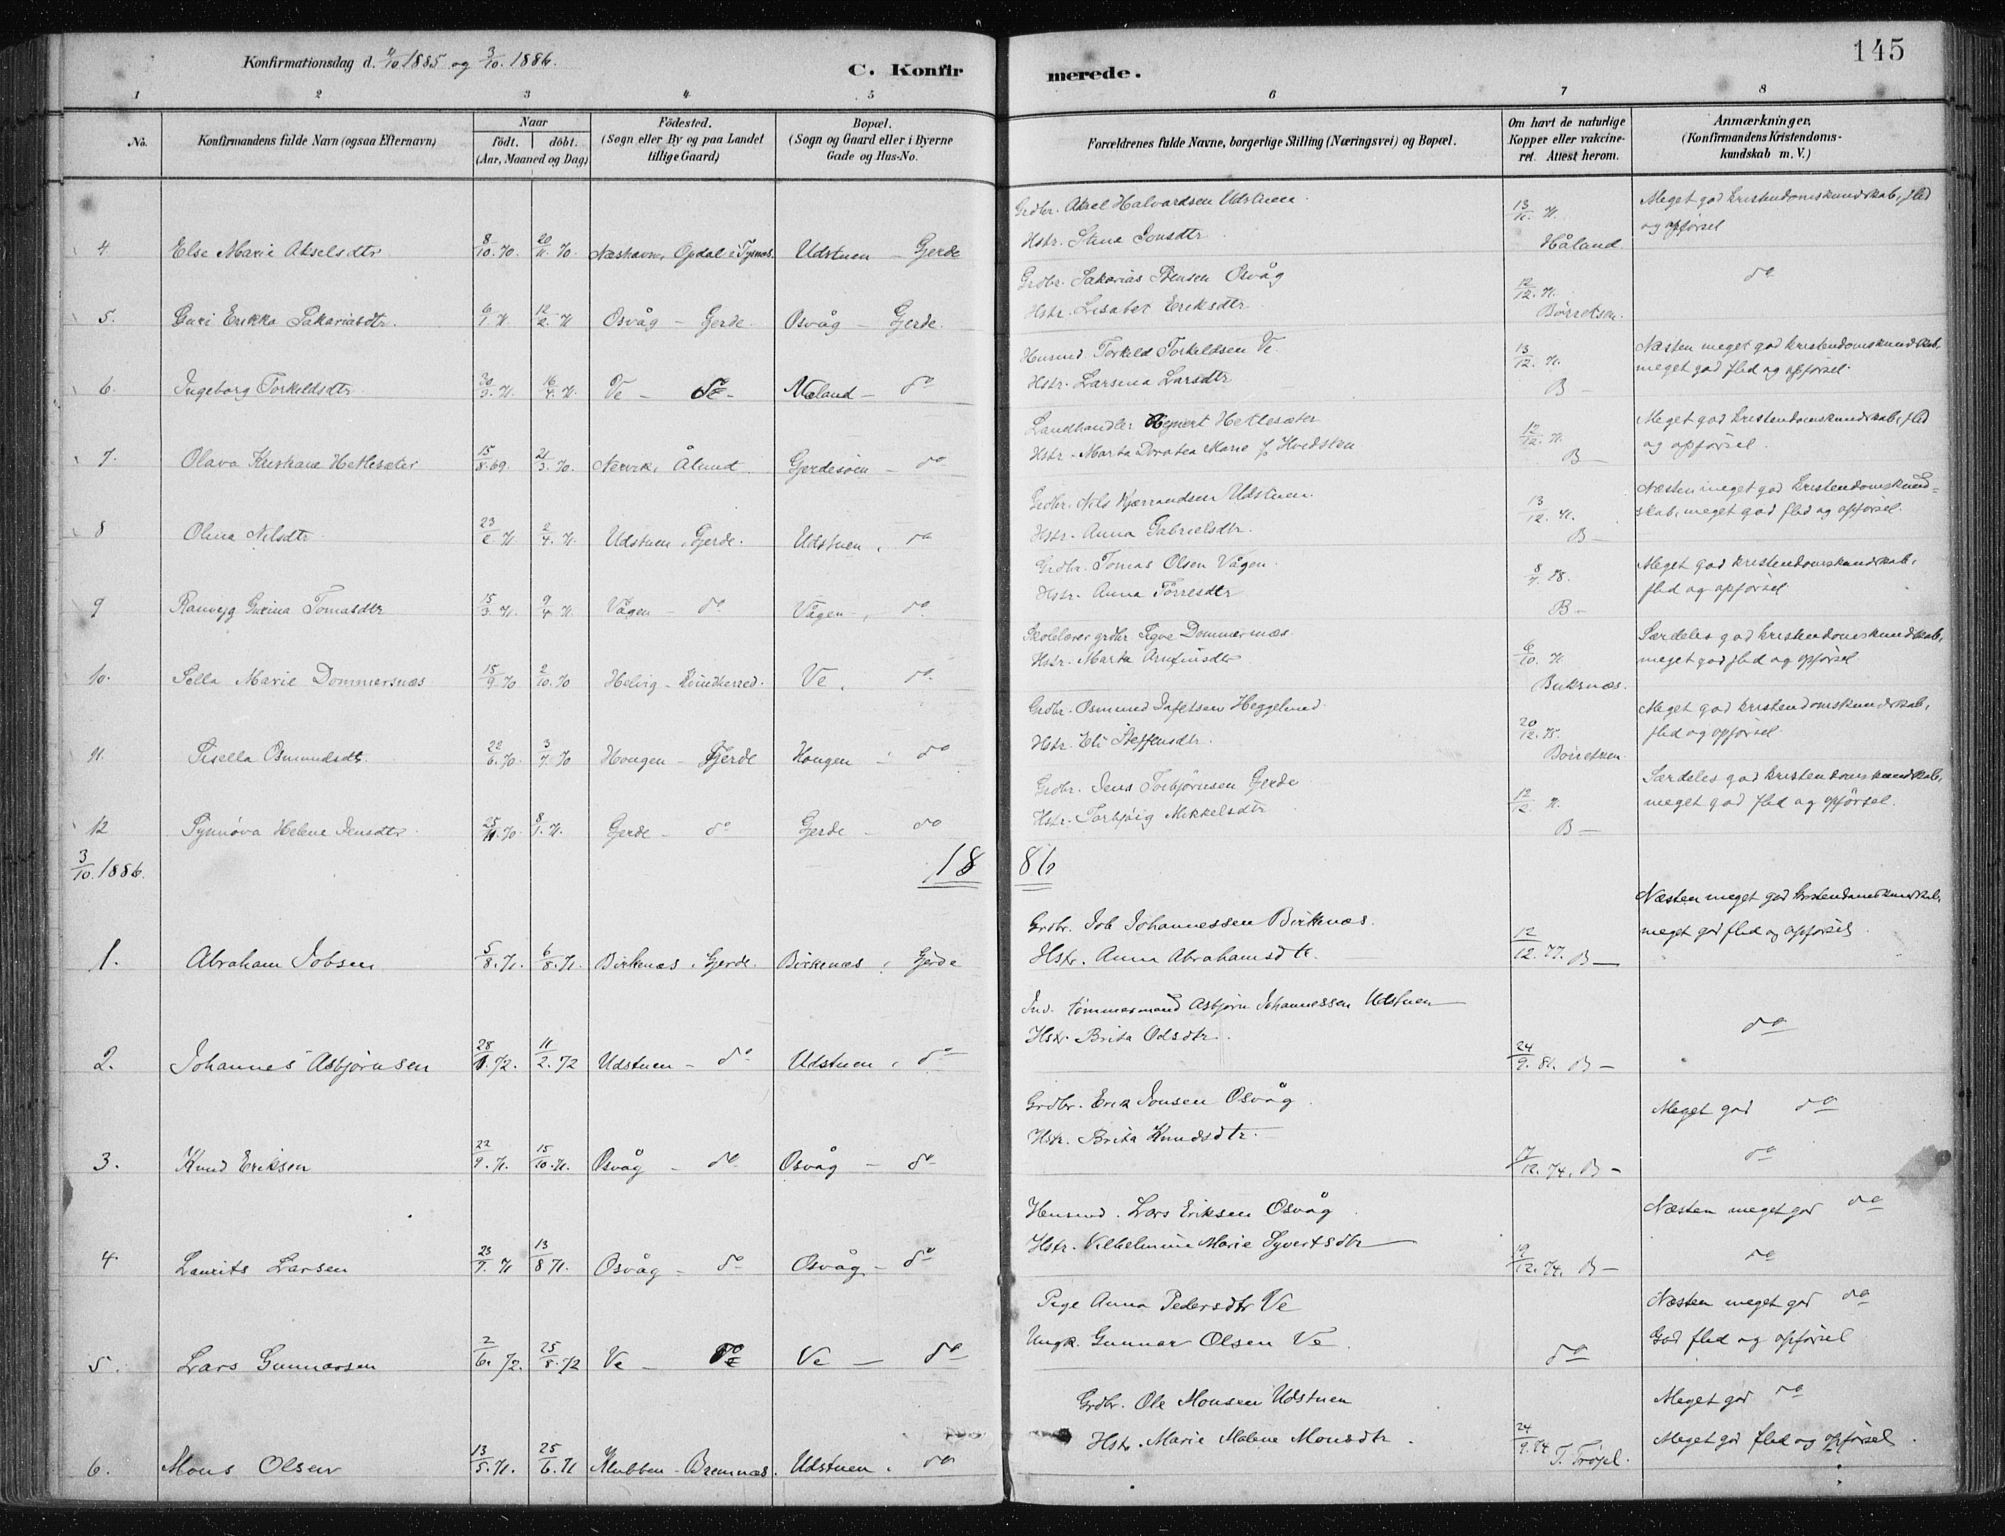 Konfirmationsdag d. 4/10 1885 og 3/10 1886.
C. Konfir merede. 145
1 2 3 4 5 6 7 8
No. Konfirmandens fulde Navn (ogsaa Efternavn) Naar født. døbt. (Aar, Maaned og Dag) Födested. (Sogn eller By og paa Landet tillige Gaard) Bopæl. (Sogn og Gaard eller i Byerne Gade og Hus-No. Forældrenes fulde Navne, borgerlige Stilling (Næringsvei) og Bopæl. Om havt de naturlige Kopper eller vakcineret. Attest herom. Anmærkninger, (Konfirmandens Kristendomskundskab m. V.)
Grdbr. Aksel Halvardsen Udstuen. 13/11. 71. Meget god kristendomskundskab, flid
Hstr. Stina Jonsdtr Håland og opførsel
4 Else Marie Akselsdtr 8/10. 70. 20/11. 70. Næshavn, Opdal i Tysnæs. Udstuen – Gjerde
Grdbr. Sakarias Stensen Osvåg 12/12. 71. do
Hstr. Lisabet Eriksdtr. Børretsen.
5. Guri Erikka Sakariasdtr. 6/1 71 12/2. 71 Osvåg – Gjerde. Osvåg – Gjerde.
Husmd Torkild Torkeldsen Ve. 13/12. 71. Næsten meget god kristendomskundskab,
Hstr. Larsina Larsdtr B – meget god flid og opførsel.
6. Ingeborg Torkeldsdtr. 30/3. 71. 16/4. 71. Ve – do – Mæland – do
Landhandler Hetlesæter 12/12. 71. Meget god kristendomskundskab, flid
Hstr. Marta Dorotea Marie f Hvidsten B – og opførsel.
7. Olava Kristiane Hetlesæter 15/8. 69. 21/3. 70. Nervik, Ålund. Gjerdesøen – do
Grdbr. Nils Kjærrandsen Udstuen. 13/12. 71. Næsten meget god kristendomskund=
Hstr. Anna Gabrielsdtr. B – skab, meget god flid og opførsel.
8 Olina Nilsdtr. 23/2. 71 2/4. 71. Udstuen, Gjerde. Udstuen, do
Grdbr. Tomas Olsen Vågen. Meget god kristendomskundskab,
Hstr. Anna Torresdtr B – flid og opførsel
9 Ranveig Gurina Tomasdtr 15/3. 71. 9/4. 71. Vågen – do Vågen, do.
Skolelærer grdbr Sigve Dommersnæs. 6/10. 71. Særdeles god kristendomskundskab,
Hstr. Marta Arnfinsdtr Buksnæs. meget god flid og opførsel
10. Sella Marie Dommersnæs 15/9. 70 2/10. 70 Helvig – Kvindherred. Ve. do.
Grdbr. Osmund Jafetsen Heggelund. Meget god kristendomskundskab,
Hstr. Eli Steffensdtr. Børretsen flid og opførsel.
11. Sisella Osmundsdtr. 22/6. 70 3/7. 70 Hougen – Gjerde Hougen – do
Grdbr. Jens Torbjørnsen Gjerde 12/12. 71. Særdeles god kristendomskundskab,
Hstr. Torbjørg Mikkelsdtr B – meget god flid og opførsel.
12 Synnøva Helene Jensdtr 25/11. 70 8/1. 71. Gjerde – do Gjerde – do
3/10. 1886. 18 86
Grdbr. Job Johannessen Birkenæs. Næsten meget god kristendomskundskab,
Hstr. Anna Abrahamsdtr. 12/12. 77. B – meget god flid og opførsel.
1. Abraham Jobsen 5/8. 71. 6/8. 71. Birkenæs, Gjerde. Birkenæs, Gjerde
Ind. tømmermand Asbjørn Johannessen Udstuen do
Hstr. Brita Olsdtr. 24/9. 86. B –
2. Johannes Asbjørnsen 28/1. 72. 11/2. 72 Udstuen – do Udstuen, do
Grdbr. Erik Jonsen Osvåg. Meget god do
Hstr. Brita Knudsdtr. 17/12. 74. B – do
3. Knud Eriksen 22/9. 71. 15/10. 71. Osvåg – do Osvåg – do
Husmd. Lars Eriksen Osvåg. Næsten meget god do
Hstr. Vilhelmine Marie Syvertsdtr 19/12. 74. B – do
4. Laurits Larsen 23/7. 71 13/8 71. Osvåg – do Osvåg – do
Pige Anna Pedersdtr Ve Næsten meget god do
Ungk. Gunnar Olsen Ve. do God flid og opførsel
5. Lars Gunnarsen 2/6. 72. 25/8. 72 Ve – do Ve – do
Grdbr. Ole Monsen Udstuen Meget god do
Hstr. Marie Malene Monsdtr. 24/9. 84. T. Trøpl. Meget god flid og opførsel.
6. Mons Olsen 13/5. 71. 25/6. 71 Klubben – Bremnæs. Udstuen. do